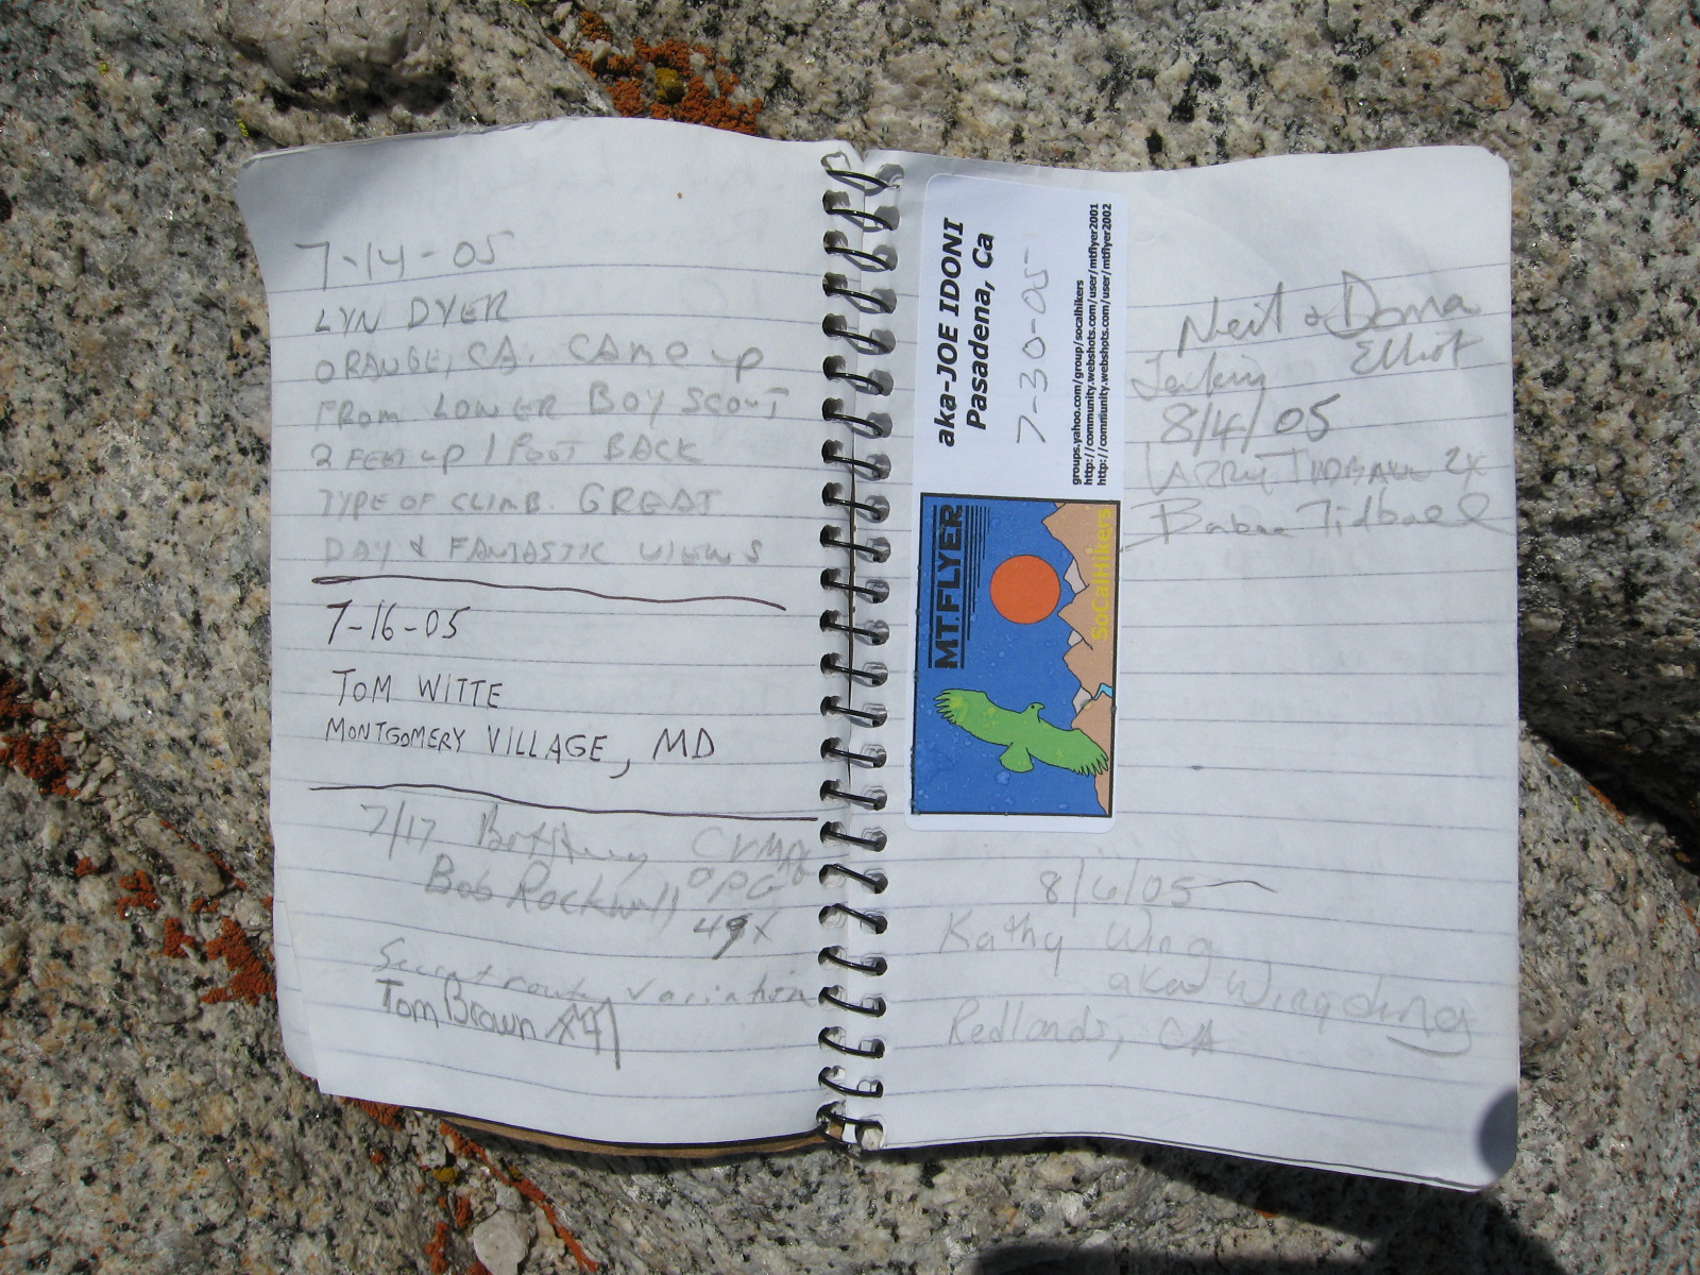 7-14-05
LYN DYER
ORANGE, CA. CAME UP
FROM LOWER BOY SCOUT
2 FEET UP 1 FOOT BACK
TYPE OF CLIMB. GREAT
DAY & FANTASTIC VIEWS
7-16-05
TOM WITTE
MONTGOMERY VILLAGE, MD
7/17
Bob Rockwell
49X
route variation
Tom Brown X4
aka-JOE IDONI
Pasadena, Ca
7-30-05
groups.yahoo.com/group/socalhikers
http://community.webshots.com/user/mtflyer2001
http://community.webshots.com/user/mtflyer2002
MT.FLYER
SoCalHikers
Neil & Donna
Elliot
8/4/05
LARRY TIDBALL 2X
Barbara Tidball
8/6/05
Kathy Wing
aka Wingding
Redlands, CA